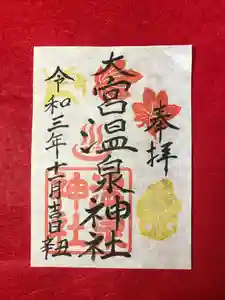 奉拝
大宮温泉神社
令和三年十一月吉日
辛丑